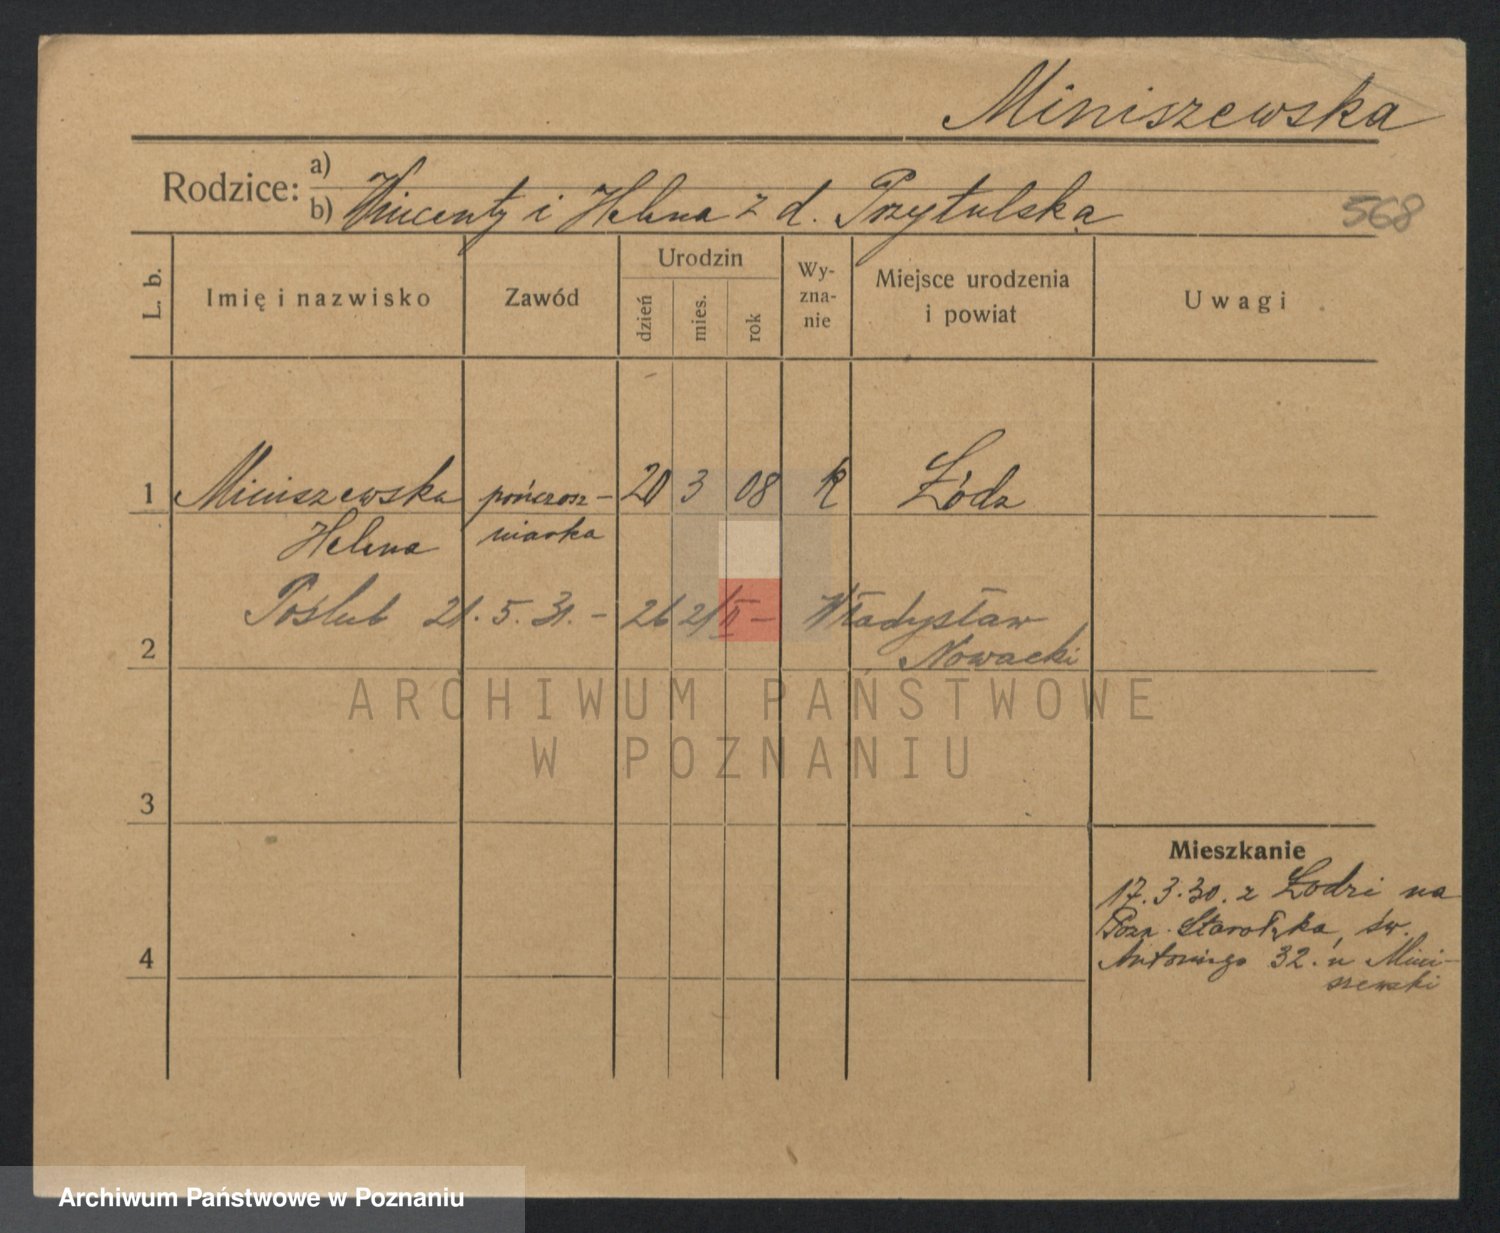 Miniszewska
Rodzice: a)
b) Wincenty i Helena z d. Przytulska
568
L. b.
Imię i nazwisko
Zawód
Urodzin
dzień
mies.
rok
Wy-
zna-
nie
Miejsce urodzenia
i powiat
Uwagi
1 Miniszewska pończosz- 20 3 08 k Łódz
Helena niarka
Poślub 21. 5. 31. - Władysław
2 Nowacki
3
4
Mieszkanie
17.3.30. z Łodzi na
Pozn. Starołęka, św.
Antoniego 32. u Mini-
szewski
ARCHIWUM PAŃSTWOWE
W POZNANIU
Archiwum Państwowe w Poznaniu